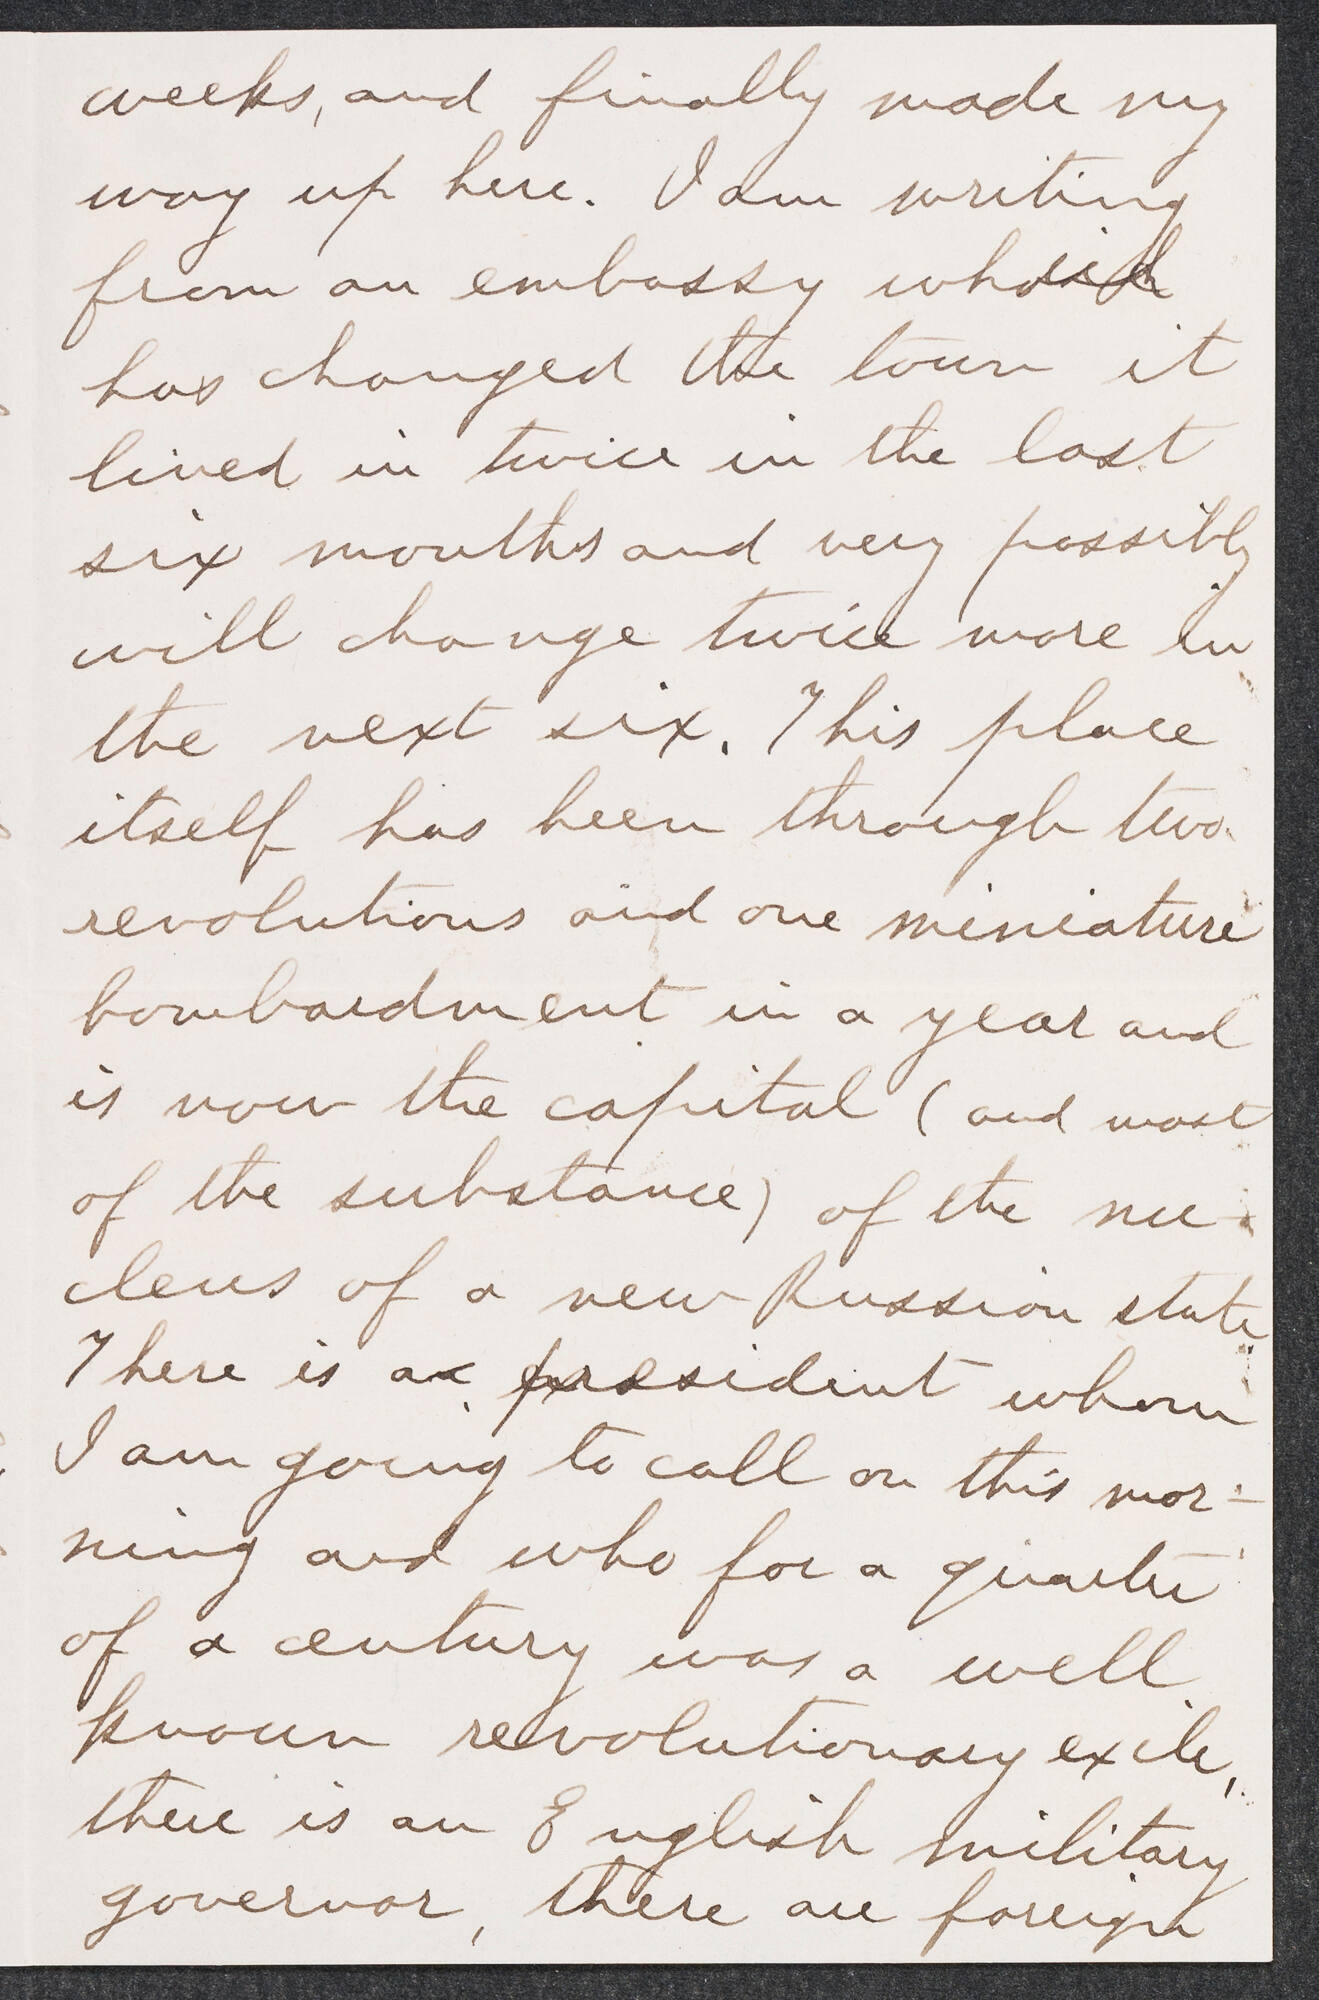 weeks, and finally made my
way up here. I am writing
from an embassy which
has changed the town it
lived in twice in the last
six months and very possibly
will change twice more in
the next six. This place
itself has been through two
revolutions and one miniature
bombardment in a year and
is now the capital (and most
of the substance) of the nu-
cleus of a new Russian state
There is a president whom
I am going to call on this mor-
ning and who for a quarter
of a century was a well
known revolutionary exile,
there is an English military
governor, there are foreign